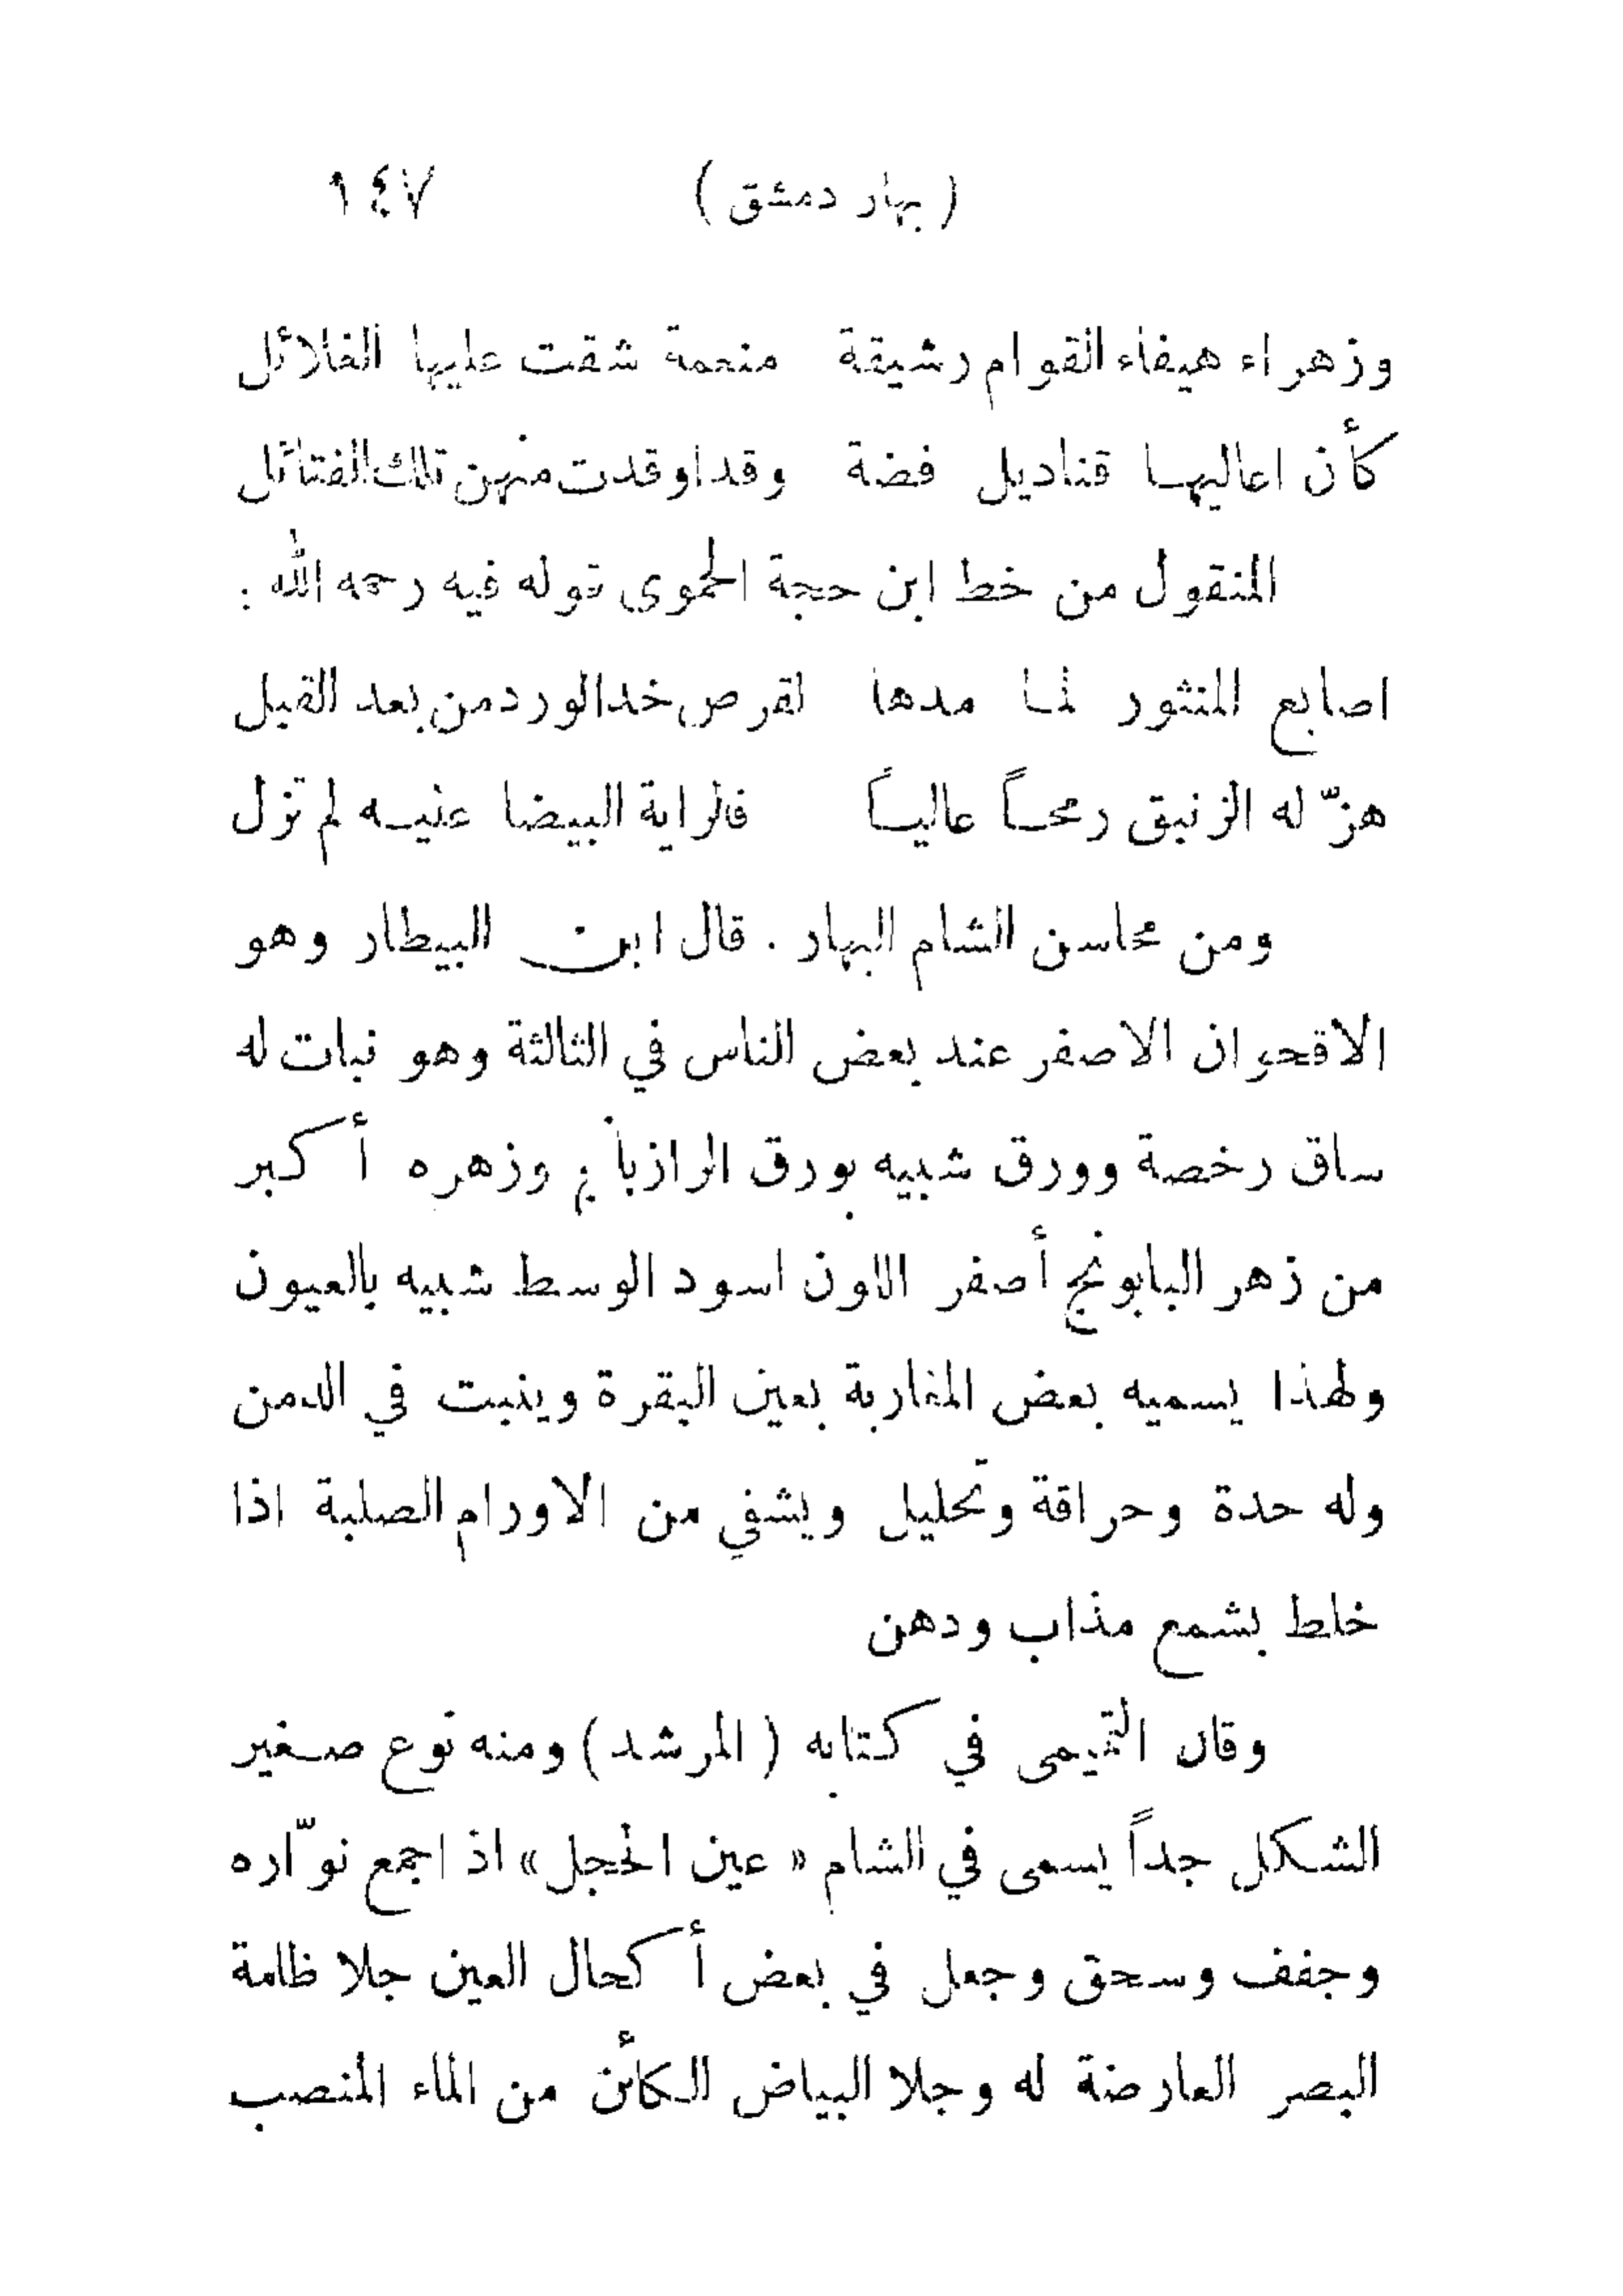 ( بهار دمشق ) ١٤٧
وزهراء هيفاء القوام رشيقة منعمة شقت عليها الغلائل
كأن اعاليها قناديل فضة وقد اوقدت منهن تلك الفتائل
المنقول من خط ابن حجة الحموى قوله فيه رحمه الله :
اصابع المنثور لما مدها لقرص خد الورد من بعد القبل
هزّ له الزنبق رمحاً عالياً فالراية البيضا عليه لم تزل
ومن محاسن الشام البهار . قال ابن البيطار وهو
الاقحوان الاصفر عند بعض الناس في الثالثة وهو نبات له
ساق رخصة وورق شبيه بورق الرازيانج وزهره أكبر
من زهر البابونج أصفر اللون اسود الوسط شبيه بالعيون
ولهذا يسميه بعض المغاربة بعين البقرة وينبت في الدمن
وله حدة وحراقة وتحليل ويشفي من الاورام الصلبة اذا
خلط بشمع مذاب ودهن
وقال التميمى في كتابه ( المرشد ) ومنه نوع صغير
الشكل جداً يسمى في الشام « عين الحجل » اذ اجمع نوّاره
وجفف وسحق وجعل في بعض أكحال العين جلا ظلمة
البصر العارضة له وجلا البياض الكائن من الماء المنصب